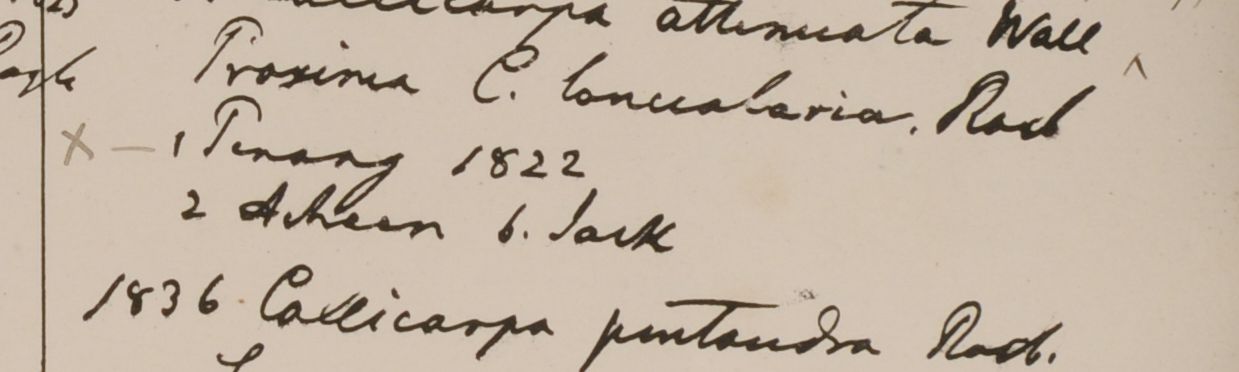 Callicarpa attenuata Wall
Proxima C. lonceolaria. Roxb
X — 1 Penang 1822
2 Acheen b. Jack
1836 Callicarpa pentandra Roxb.